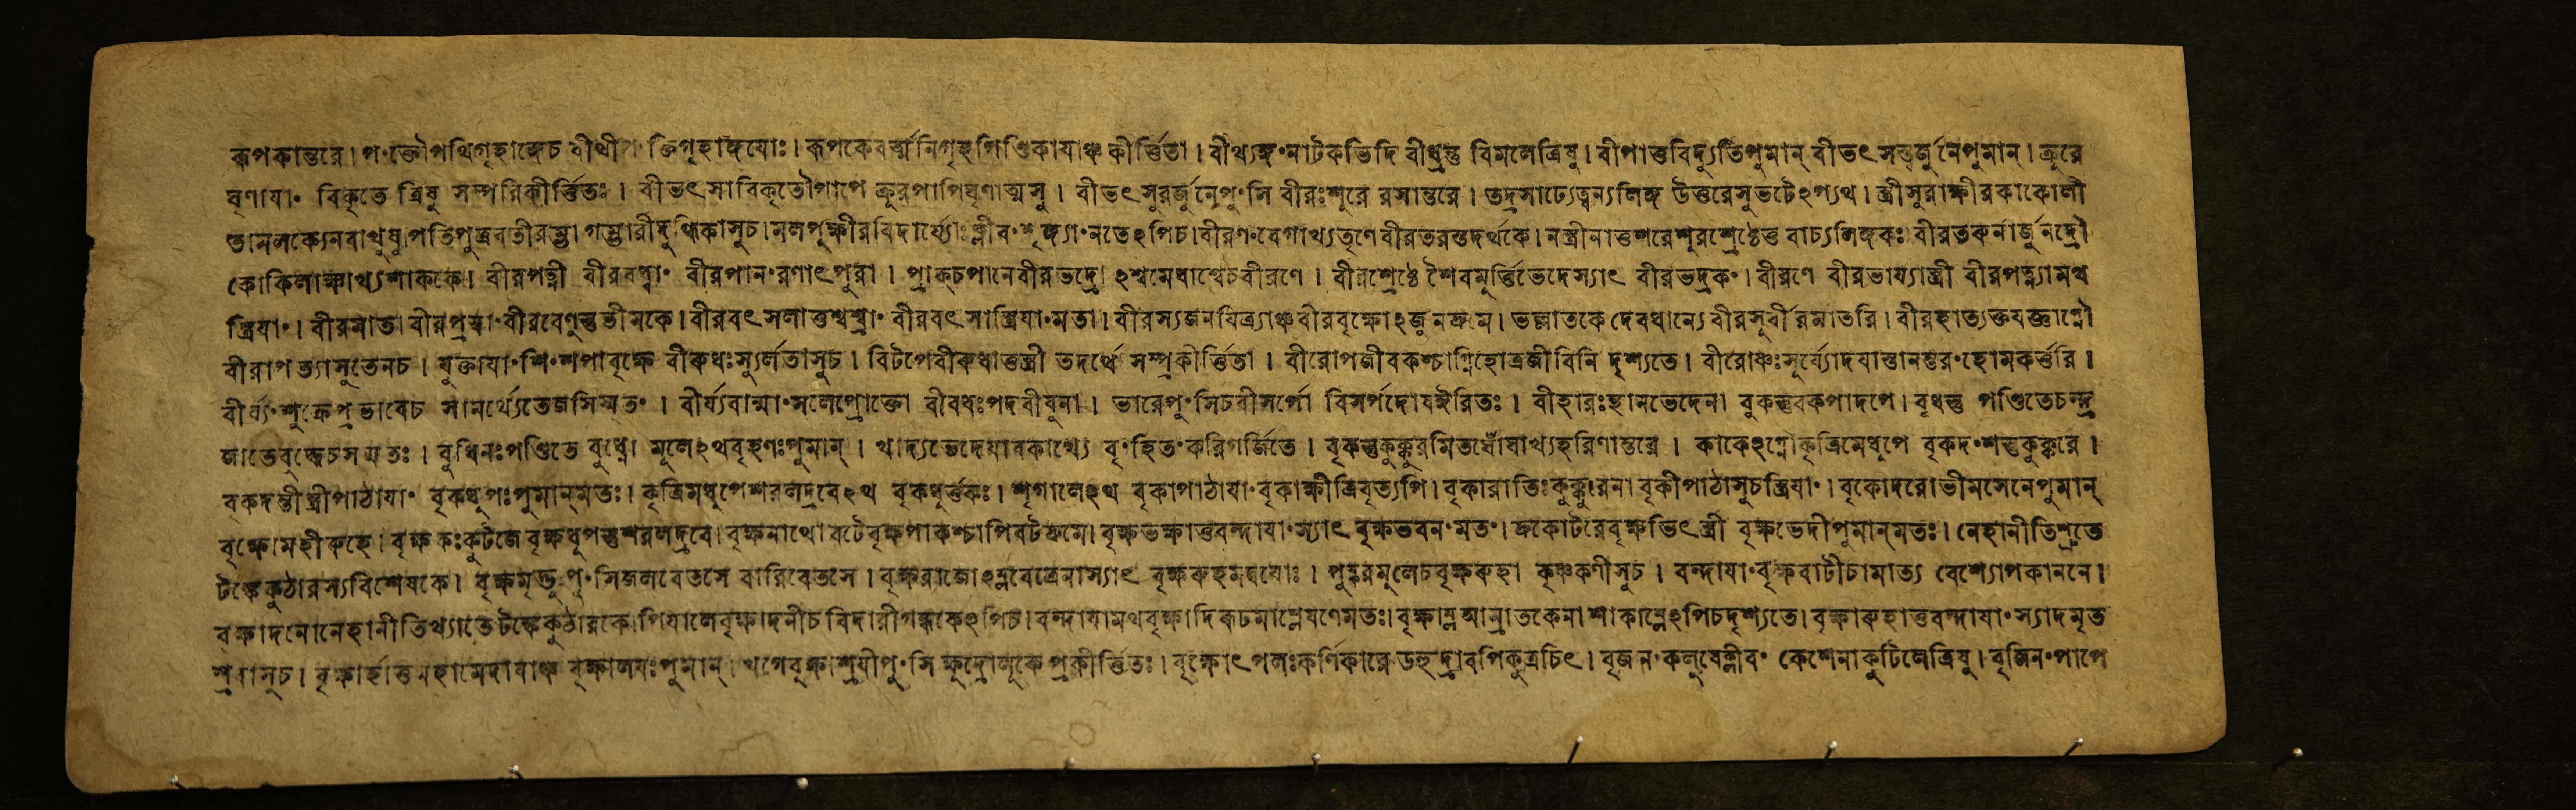 রূপকান্তরে। পংক্তৌপথিগৃহাঙ্গেচ বীথীপংক্তিগৃহাঙ্গযোঃ। রূপকেবর্ত্মনিগৃহপিণ্ডিকাযাঞ্চ কীর্ত্তিতা। বীথ্যঙ্গংনাটকভিদি বীধ্রন্তু বিমলেত্রিষু। বীপাত্তবিদ্যুতিপুমান্ বীভৎসত্ত্বর্জুনেপুমান্। ক্রূরে
ঘৃণাযাং বিকৃতে ত্রিষু সম্পরিকীর্ত্তিতঃ। বীভৎসাবিকৃতৌপাপে ক্রূরপাপিঘৃণাত্মসু। বীভৎসুরর্জুনেপুংসি বীরঃশূরে রসান্তরে। তদ্রসাঢ্যেত্বন্যলিঙ্গ উত্তরেসুভটেঽপ্যথ। স্ত্রীসুরাক্ষীরকাকোলী
তামলক্যেলবালুষু।পতিপুত্রবতীরম্ভা গম্ভারীদুগ্ধিকাসুচ।মলপূক্ষীরবিদার্য্যোঃক্লীবংশৃঙ্গ্যাংনতেঽপিচ।বীরণংবেণাখ্যতৃণেবীরতরন্তদর্থকে।নস্ত্রীনাত্তশরেশূরশ্রেষ্ঠেত্ত বাচ্যলিঙ্গকঃ।বীরতরুর্নার্জুনদ্রৌ
কোকিলাক্ষাখ্যশাককে। বীরপত্নী বীরবধ্বাং বীরপানংরণাৎপুরা। প্রাক্চপানেবীরভদ্রো ঽশ্বমেধাশ্বেচবীরণে। বীরশ্রেষ্ঠে শৈবমূর্ত্তিভেদেস্যাৎ বীরভদ্রকং। বীরণে বীরভার্য্যাস্ত্রী বীরপত্ন্যামথ
স্ত্রিযাং। বীরমাতা বীরপ্রস্বাং বীরবেণুস্তুভীমকে। বীরবৎসলাত্তশ্বশ্র্বাং বীরবৎসাস্ত্রিযাংমতা। বীরস্যজনযিত্র্যাঞ্চবীরবৃক্ষোঽর্জুনদ্রুমে। ভল্লাতকে দেবধান্যে বীরসূর্বীরমাতরি। বীরহাত্যক্তযজ্ঞাগ্নৌ
বীরাপত্যাসুতেনচ। যুক্তাযাংশিংশপাবৃক্ষে বীরুধঃস্যুর্লতাসুচ। বিটপেবীরুধাত্তস্ত্রী তদর্থে সম্প্রকীর্ত্তিতা। বীরোপজীবকশ্চাগ্নিহোত্রজীবিনি দৃশ্যতে। বীরোষ্ণঃসূর্য্যোদযাস্তানন্তরংহোমকর্ত্তরি।
বীর্য্যংশুক্রেপ্রভাবেচ সামর্থ্যেতেজসিস্মৃতং। বীর্য্যবান্মাংসলেপ্রোক্তো বীবধঃপদবীযুনা। ভারেপুংসিচবীসর্পো বিসর্পদোযঈরিতঃ। বীহারঃস্থানভেদেনা বুকস্তুবকপাদপে। বুধস্তু পণ্ডিতেচন্দ্র
জাতেবুদ্ধেচসম্মতঃ। বুধিলঃপণ্ডিতে বুধ্নো মূলেঽথবৃংহণঃপুমান্। খাদ্যভেদেযাবকাখ্যে বৃংহিতংকরিগর্জিতে। বৃকস্তুকুক্কুরমিতঘোঁঘাখ্যহরিণান্তরে। কাকেঽগ্নৌকৃত্রিমেধূপে বৃকদংশস্তুকুক্কুরে।
বৃকদন্তীস্ত্রীপাঠাযাং বৃকধূপঃপুমান্মতঃ। কৃত্রিমধূপেশরলদ্রবেঽথ বৃকধূর্ত্তকঃ। শৃগালেঽথ বৃকাপাঠাযাংবৃকাক্ষীত্রিবৃত্যপি। বৃকারাতিঃকুক্কুরেনা বৃকীপাঠাসুচস্ত্রিযাং। বৃকোদরোভীমসেনেপুমান্
বৃক্ষোমহীরুহে। বৃক্ষকঃকুটজে বৃক্ষধূপস্তুশরলদ্রবে। বৃক্ষনাথো বটেবৃক্ষপাকশ্চাপিবটদ্রুমে। বৃক্ষভক্ষাত্তবন্দাযাংস্যাৎ বৃক্ষভবনংমতং। দ্রুকোটরেবৃক্ষভিৎস্ত্রী বৃক্ষভেদীপুমান্মতঃ। নেহানীতিশ্রুতে
টঙ্কেকুঠারস্যবিশেষকে। বৃক্ষমৃদ্ভূপুংসিজলবেতসে বারিবেতসে। বৃক্ষরাজোঽম্লবেত্রেনাস্যাৎ বৃক্ষরুহমদ্বযোঃ। পুষ্করমূলেচবৃক্ষরুহা কৃষ্ণকর্ণীসুচ। বন্দাযাংবৃক্ষবাটীচামাত্য বেশ্যোপকাননে।
বৃক্ষাদনোনেহানীতিখ্যাতে টঙ্কেকুঠারকে।পিযালেবৃক্ষাদনীচ বিদারীগন্ধকেঽপিচ। বন্দাযামথবৃক্ষাদিরূঢমাশ্লেষণেমতঃ। বৃক্ষাম্লআম্রাতকেনা শাকাম্লেঽপিচদৃশ্যতে। বৃক্ষারুহাত্তবন্দাযাংস্যাদমৃত
শ্রবাসুচ। বৃক্ষার্হাত্তমহামেদাযাঞ্চ বৃক্ষালযঃপুমান্। খগেবৃক্ষাশ্রযীপুংসি ক্ষুদ্রোলূকে প্রকীর্ত্তিতঃ। বৃক্ষোৎপলঃকর্ণিকারে ডহুদ্রাবপিকুত্রচিৎ। বৃজনংকলুষেক্লীবং কেশেনাকুটিলেত্রিষু। বৃজিনংপাপে